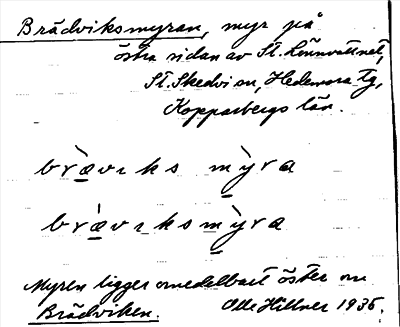 Brädviksmyran, myr på
östra sidan av St. Lönnvattnet,
St. Skedvi sn, Hedemora tg,
Kopparbergs län.
br`ævıks m`yra
br´ævıksm`yra
Myren ligger omedelbart öster om
Brädviken. Olle Hillner 1935.